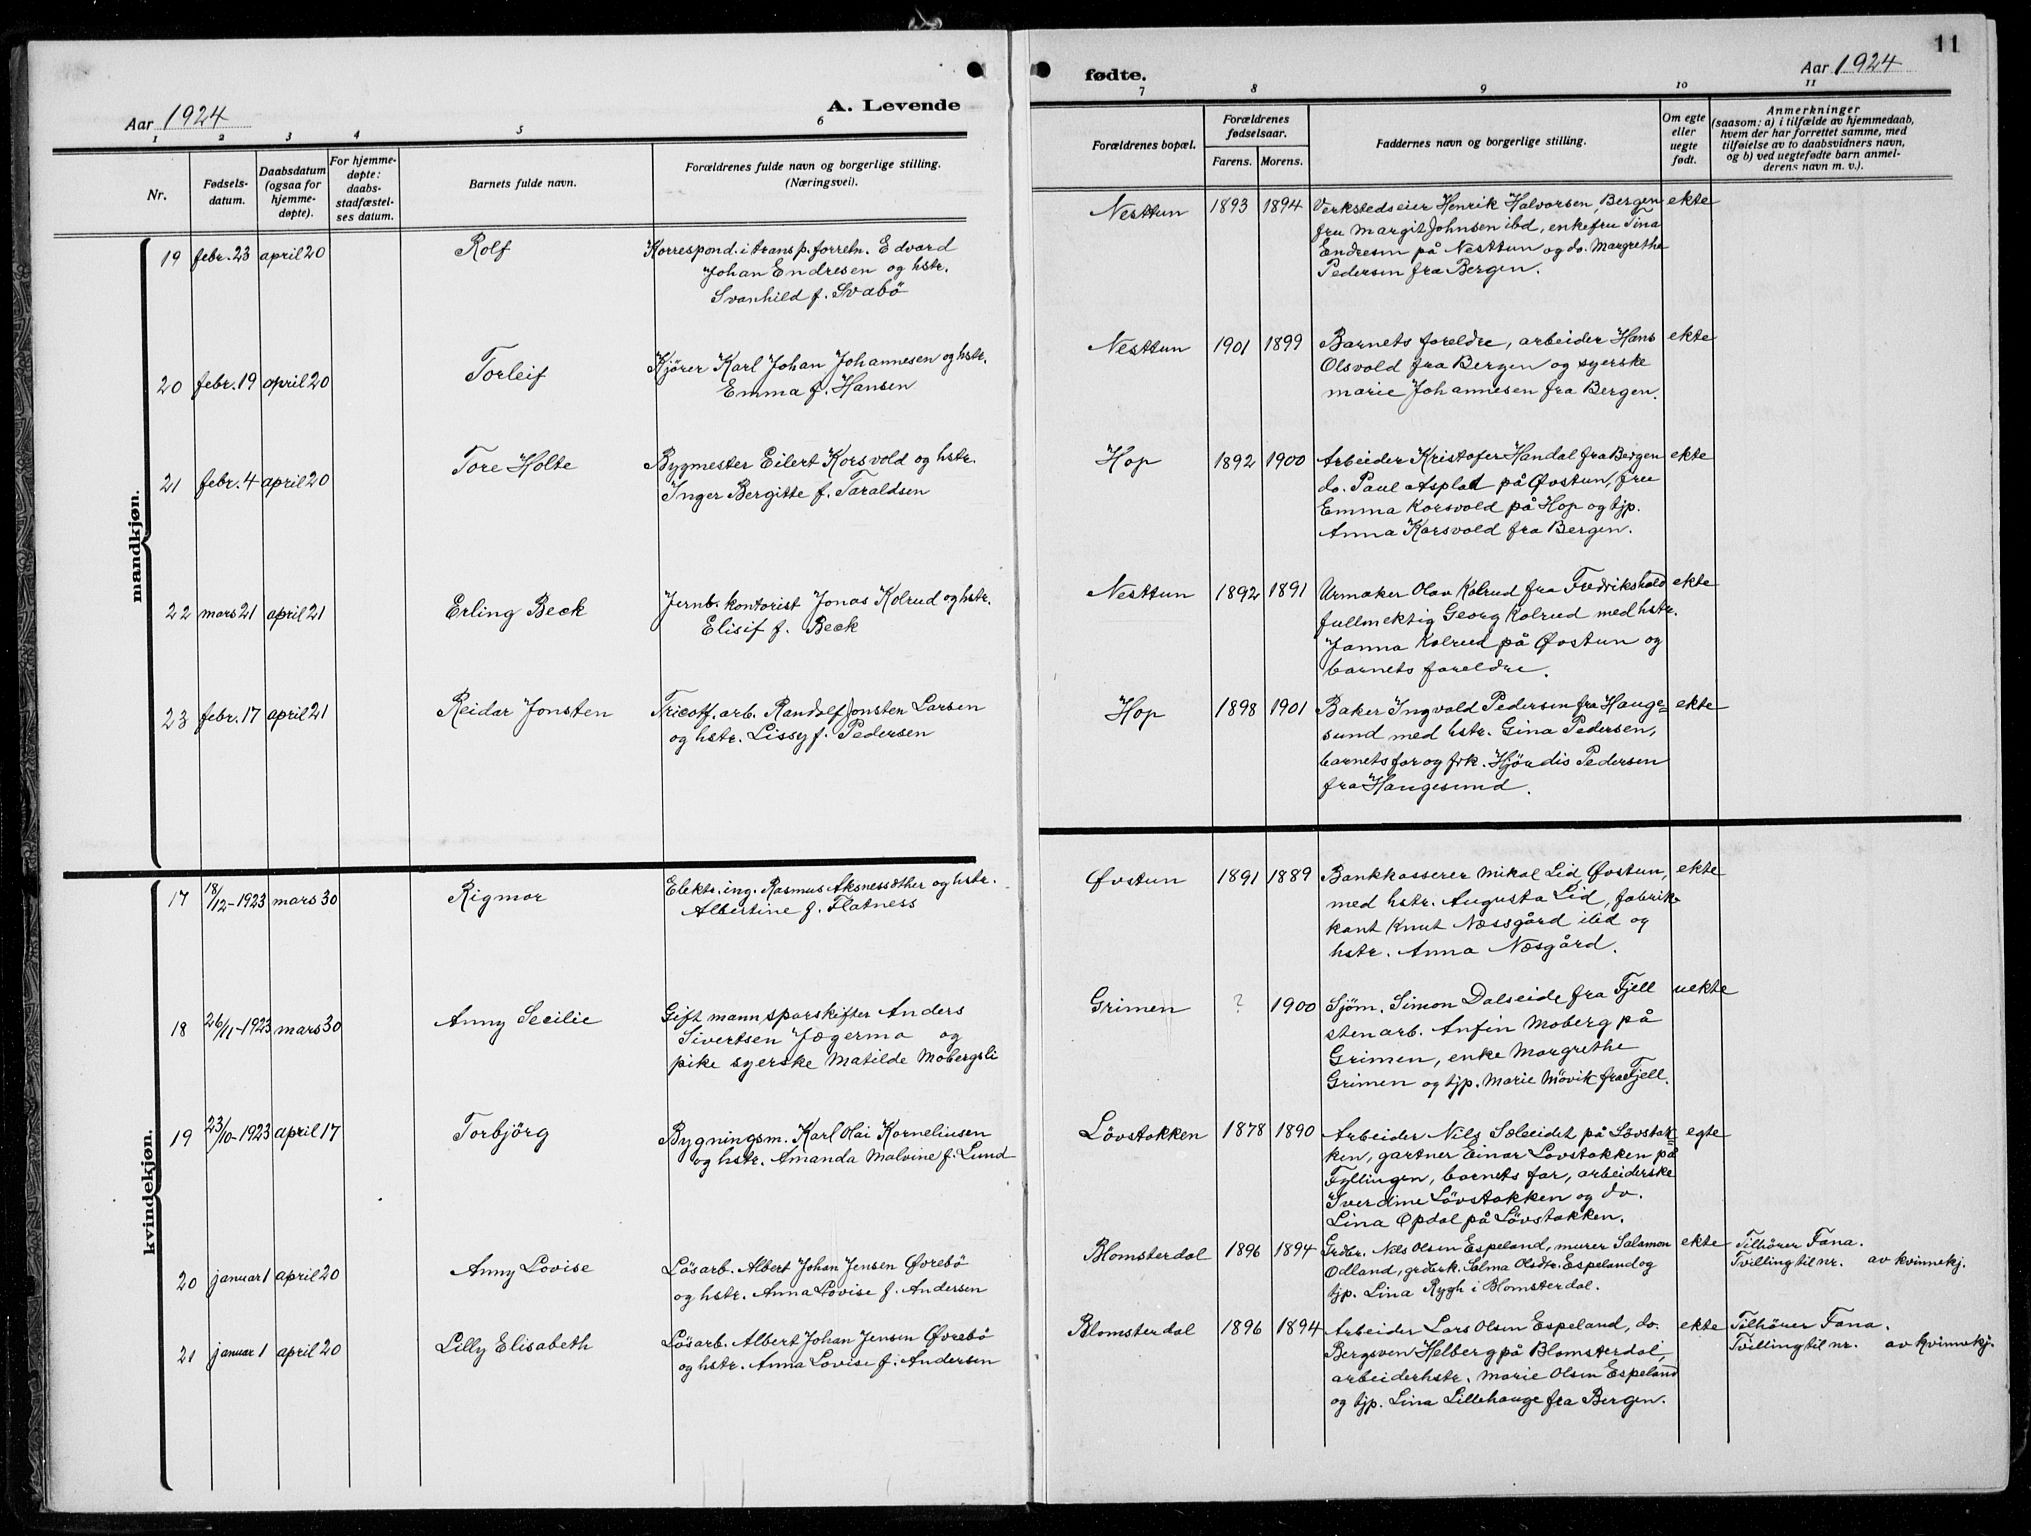 11
Aar 1924
A. Levende
fødte.
Aar 1924
1 2 3 4 5 6 7 8 9 10 11
Nr.
Fødsels-
datum.
Daabsdatum
(ogsaa for
hjemme-
døpte).
For hjemme-
døpte:
daabs-
stadfæstel-
ses datum.
Barnets fulde navn.
Forældrenes fulde navn og borgerlige stilling.
(Næringsvei).
Forældrenes bopæl.
Forældrenes
fødselsaar.
Farens. Morens.
Faddernes navn og borgerlige stilling.
Om egte
eller
uegte
født.
Anmerkninger
(saasom: a) i tilfælde av hjemmedaab,
hvem der har forrettet samme, med
tilføielse av to daabsvidners navn,
og b) ved uegtefødte barn anmel-
derens navn m. v.).
mandkjøn.
19 febr. 23 april 20 Rolf
Korrespond. i transp. forretn. Edvard
Johan Endresen og hstr.
Svanhild f. Svabö
Nesttun 1893 1894
Verkstedseier Henrik Halvorsen, Bergen
fru Margit Johnsen ibd, enkefru Tina
Endresen på Nesttun og do. Margrethe
Pedersen fra Bergen.
ekte
20 febr. 19 april 20 Torleif
Kjörer Karl Johan Johannesen og hstr.
Emma f. Hansen
Nesttun 1901 1899
Barnets foreldre, arbeider Hans
Olsvold fra Bergen og syerske
Marie Johannesen fra Bergen.
ekte
21 febr. 4 april 20 Tore Holte
Bygmester Eilert Korsvold og hstr.
Inger Bergitte f. Taraldsen
Hop 1892 1900
Arbeider Kristofer Handal fra Bergen
do. Paul Asplat på Øvstun, fru
Emma Korsvold på Hop og tjp.
Anna Korsvold fra Bergen.
ekte
22 mars 21 april 21 Erling Beck
Jernb. kontorist Jonas Kolrud og hstr.
Elisif f. Beck
Nesttun 1892 1891
Urmaker Olav Kolrud fra Fredrikshald
fullmektig Georg Kolrud med hstr.
Janna Kolrud på Øvstun og
barnets foreldre.
ekte
23 febr. 17 april 21 Reidar Jonsten
Tricotf. arb. Randolf Jonsten Larsen
og hstr. Lissy f. Pedersen
Hop 1898 1901
Baker Ingvald Pedersen fra Hauge-
sund med hstr. Gina Pedersen,
barnets far og frk. Hjördis Pedersen
fra Haugesund.
ekte
kvindekjøn.
17 18/12-1923 mars 30 Rigmor
Elektr. ing. Rasmus Aksnessæther og hstr.
Albertine f. Flatness
Øvstun 1891 1889
Bankkasserer Mikal Lid Øvstun,
med hstr. Augusta Lid, fabrik-
kant Knut Næssgård ibid og
hstr. Anna Næsgård.
ekte
18 26/11-1923 mars 30 Anny Secilie
Gift mann sporskifter Anders
Sivertsen Jægermo og
pike syerske Matilde Mobergsli
Grimen ? 1900
Sjöm. Simon Dalseide fra Fjell
stenarb. Anfin Moberg på
Grimen, enke Margrethe
Grimen og tjp. Marie Mövik fra Fjell.
uekte
19 23/10-1923 april 17 Torbjörg
Bygningsm. Karl Olai Korneliusen
og hstr. Amanda Malvine f. Lund
Lövstakken 1878 1890
Arbeider Nils Sæleidet på Lövstak
ken, gartner Einar Lövstakken på
Fyllingen, barnets far, arbeiderske
Iverdine Lövstakken og do.
Lina Opdal på Lövstakken.
egte
20 januar 1 april 20 Anny Lovise
Lösarb. Albert Johan Jensen Øvrebö
og hstr. Anna Lovise f. Andersen
Blomsterdal 1896 1894
Grdbr. Nils Olsen Espeland, murer Salamon
Odland, grdbrk. Salma Olsdtr. Espeland og
tjp. Lina Rygh i Blomsterdal.
ekte
Tilhörer Fana.
Tvilling til nr. av kvinnekj.
21 januar 1 april 20 Lilly Elisabeth
Lösarb. Albert Johan Jensen Øvrebö
og hstr. Anna Lovise f. Andersen
Blomsterdal 1896 1894
Arbeider Lars Olsen Espeland, do.
Bergsven Helberg på Blomsterdal,
arbeiderhstr. Marie Olsen Espeland
og tjp. Lina Lillehauge fra Bergen.
ekte
Tilhörer Fana.
Tvilling til nr. av kvinnekj.